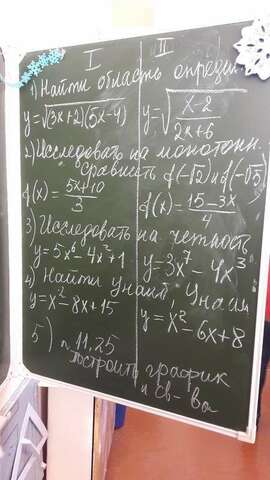 I II
1) Найти область определ.
y=√(3x+2)(5x-4) y=√(x-2)/(2x+6)
2) Исследовать на монотонн.
сравнить f(-√2) и f(-√5)
f(x)=(5x+10)/3 f(x)=(15-3x)/4
3) Исследовать на четность
y=5x⁶-4x²+1 y=3x⁷-4x³
4) Найти yнаиб, yнаим
y=x²-8x+15 y=x²-6x+8
5) п. 11.25
построить график
и св-ва